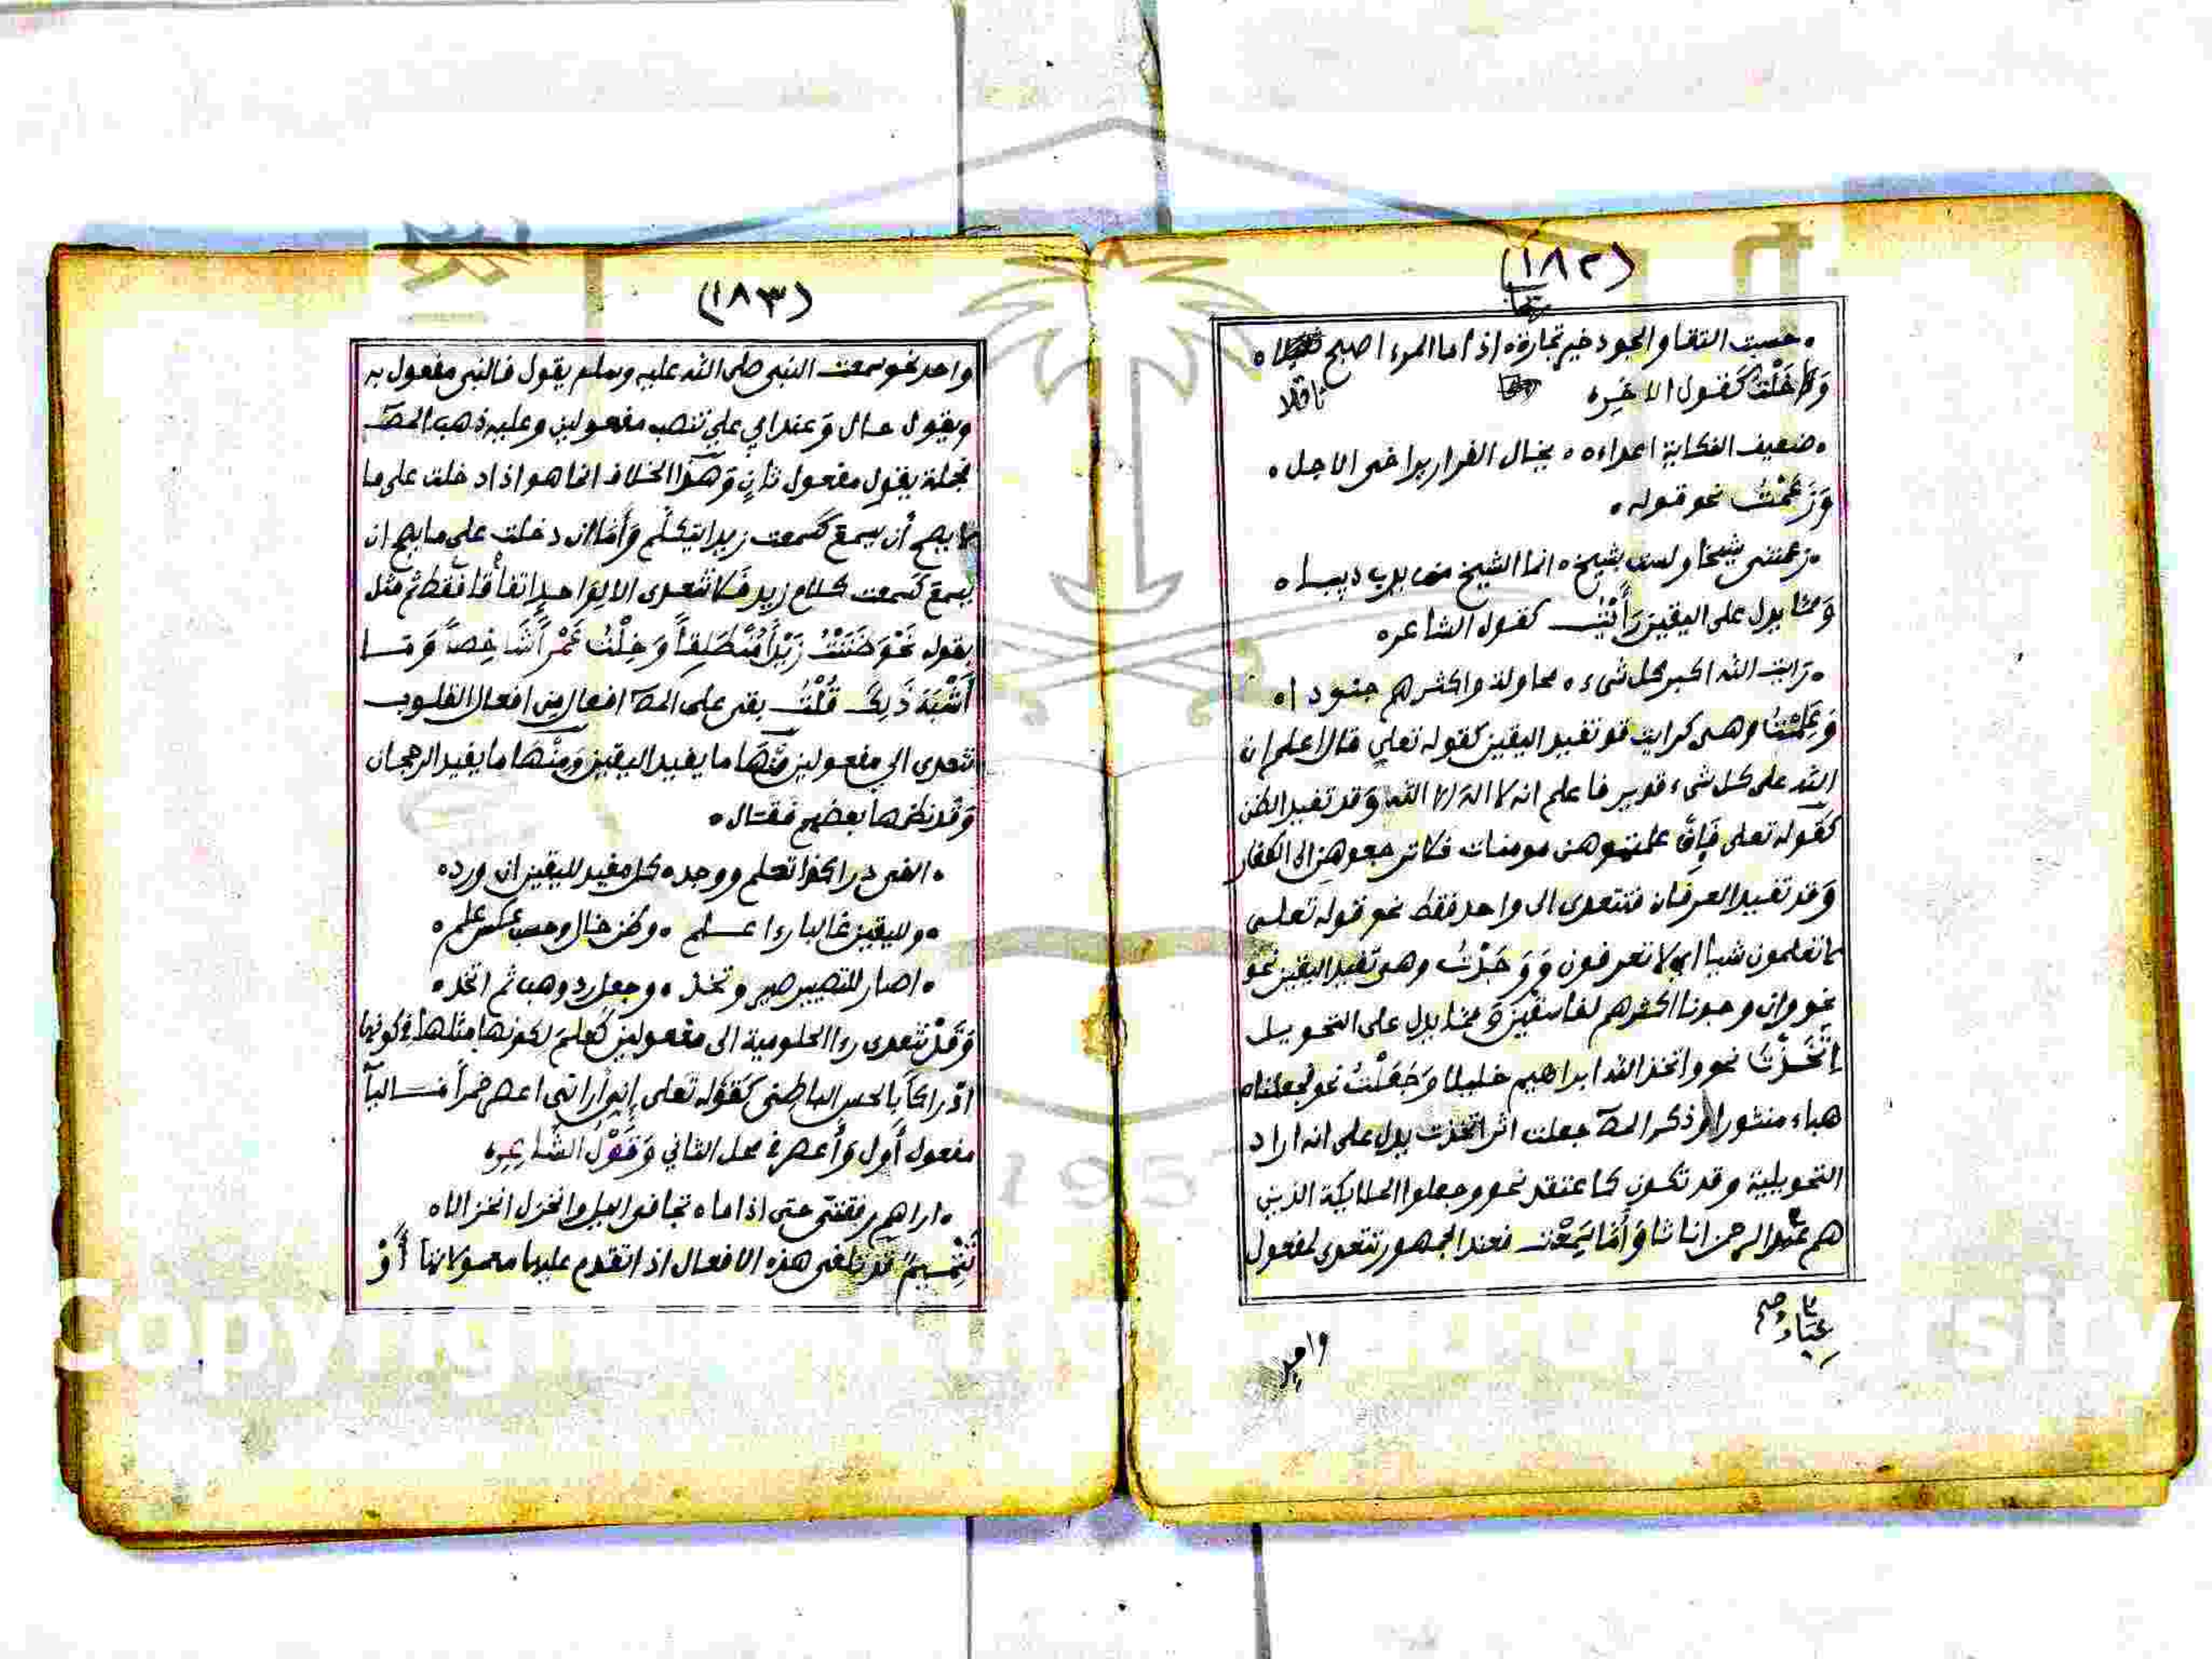 (١٨٢)
حسبت التقا والجود خير تجارة ، اذا ما المرء اصبح
ثاقلا
وَخِلْتُ كقول الاخر
ضعيف النكاية اعداءه ، يخال الفرار يراخى الاجل
وَزَعَمْتُ نحو قوله
زعمتنى شيخا ولست بشيخ ، انما الشيخ من يدب دبيبا
وَمما يدل على اليقين رَأَيْتُ كقول الشاعر
رايت الله اكبر كل شىء ، محاولة واكثرهم جنودا
وَعَلِمْتُ وهى كرايت قد تفيد اليقين كقوله تعلى قال اعلم ان
الله على كل شىء قدير فاعلم انه لا اله الا الله وَقد تفيد الظن
كقوله تعلى فَإِن علمتموهن مومنات فلا ترجعوهن الى الكفار
وَقد تفيد العرفان فتتعدى الى واحد فقط نحو قوله تعلى
لا تعلمون شيا اي لا تعرفون وَوَجَدْتُ وهى تفيد اليقين نحو
نحو وان وجدنا اكثرهم لفاسقين وَمما يدل على التحويل
اتَّخَذْتُ نحو واتخذ الله ابراهيم خليلا وَجَعَلْتُ نحو فجعلناه
هباء منثورا وذكر المص جعلت اثر اتخذت يدل على انه اراد
التحويلية وقد تكون كاعتقد نحو وجعلوا الملايكة الذين
هم عند الرحمن اناثا وَأَمَّا سَمِعْتُ فعند الجمهور تتعدى لمفعول
عِبَاد صح
واحد
(١٨٣)
واحد نحو سمعت النبى صلى الله عليه وسلم يقول فالنبى مفعول به
ويقول حال وَعند ابي علي تنصب مفعولين وعليه ذهب المص
فجملة يقول مفعول ثانٍ وَهذا الخلاف انما هو اذا دخلت على ما
لا يصح أن يسمع كسمعت زيدا يتكلم وَأَما ان دخلت على ما يصح ان
يسمع كسمعت كلام زيد فَلا تتعدى الا لِواحدٍ اتفاقا فقط ثم مثل
بقوله نَحْوَ ظَنَنْتُ زَيْداً مُنْطَلِقاً وَخِلْتُ عَمْراً شَاخِصاً وَمَا
أَشْبَهَ ذَلِكَ قُلْتُ بقى على المص افعال من افعال القلوب
تتعدى الى مفعولين مِنْهَا ما يفيد اليقين وَمِنْهَا ما يفيد الرجحان
وَقَد نظمها بعضهم فقال
الفى درا كذا تعلم ووجد ، كل مفيد لليقين ان ورد
ولليقين غالبا رءا علم ، وظن خال وحسب عكس علم
اصار للتصيير صير وتخذ ، وجعل رد وهب ثم اتخذ
وَقَدْ تتعدى رءا الحلومية الى مفعولين كَعلم لكونها مثلها في كونها
ادْراكاً بالحس الباطنى كَقَوله تعلى إني أراني اعصر خمراً فاليا
مفعول أَول وَأعصر فى محل الثاني وَقَوْلُ الشَّاعِرِ
اراهم رفقتى حتى اذا ما ، تجافى اليل وانخزل انخزالا
تَتْمِيمٌ قد تلغى هذه الافعال اذا تقدم عليها معمولاتها أَوْ